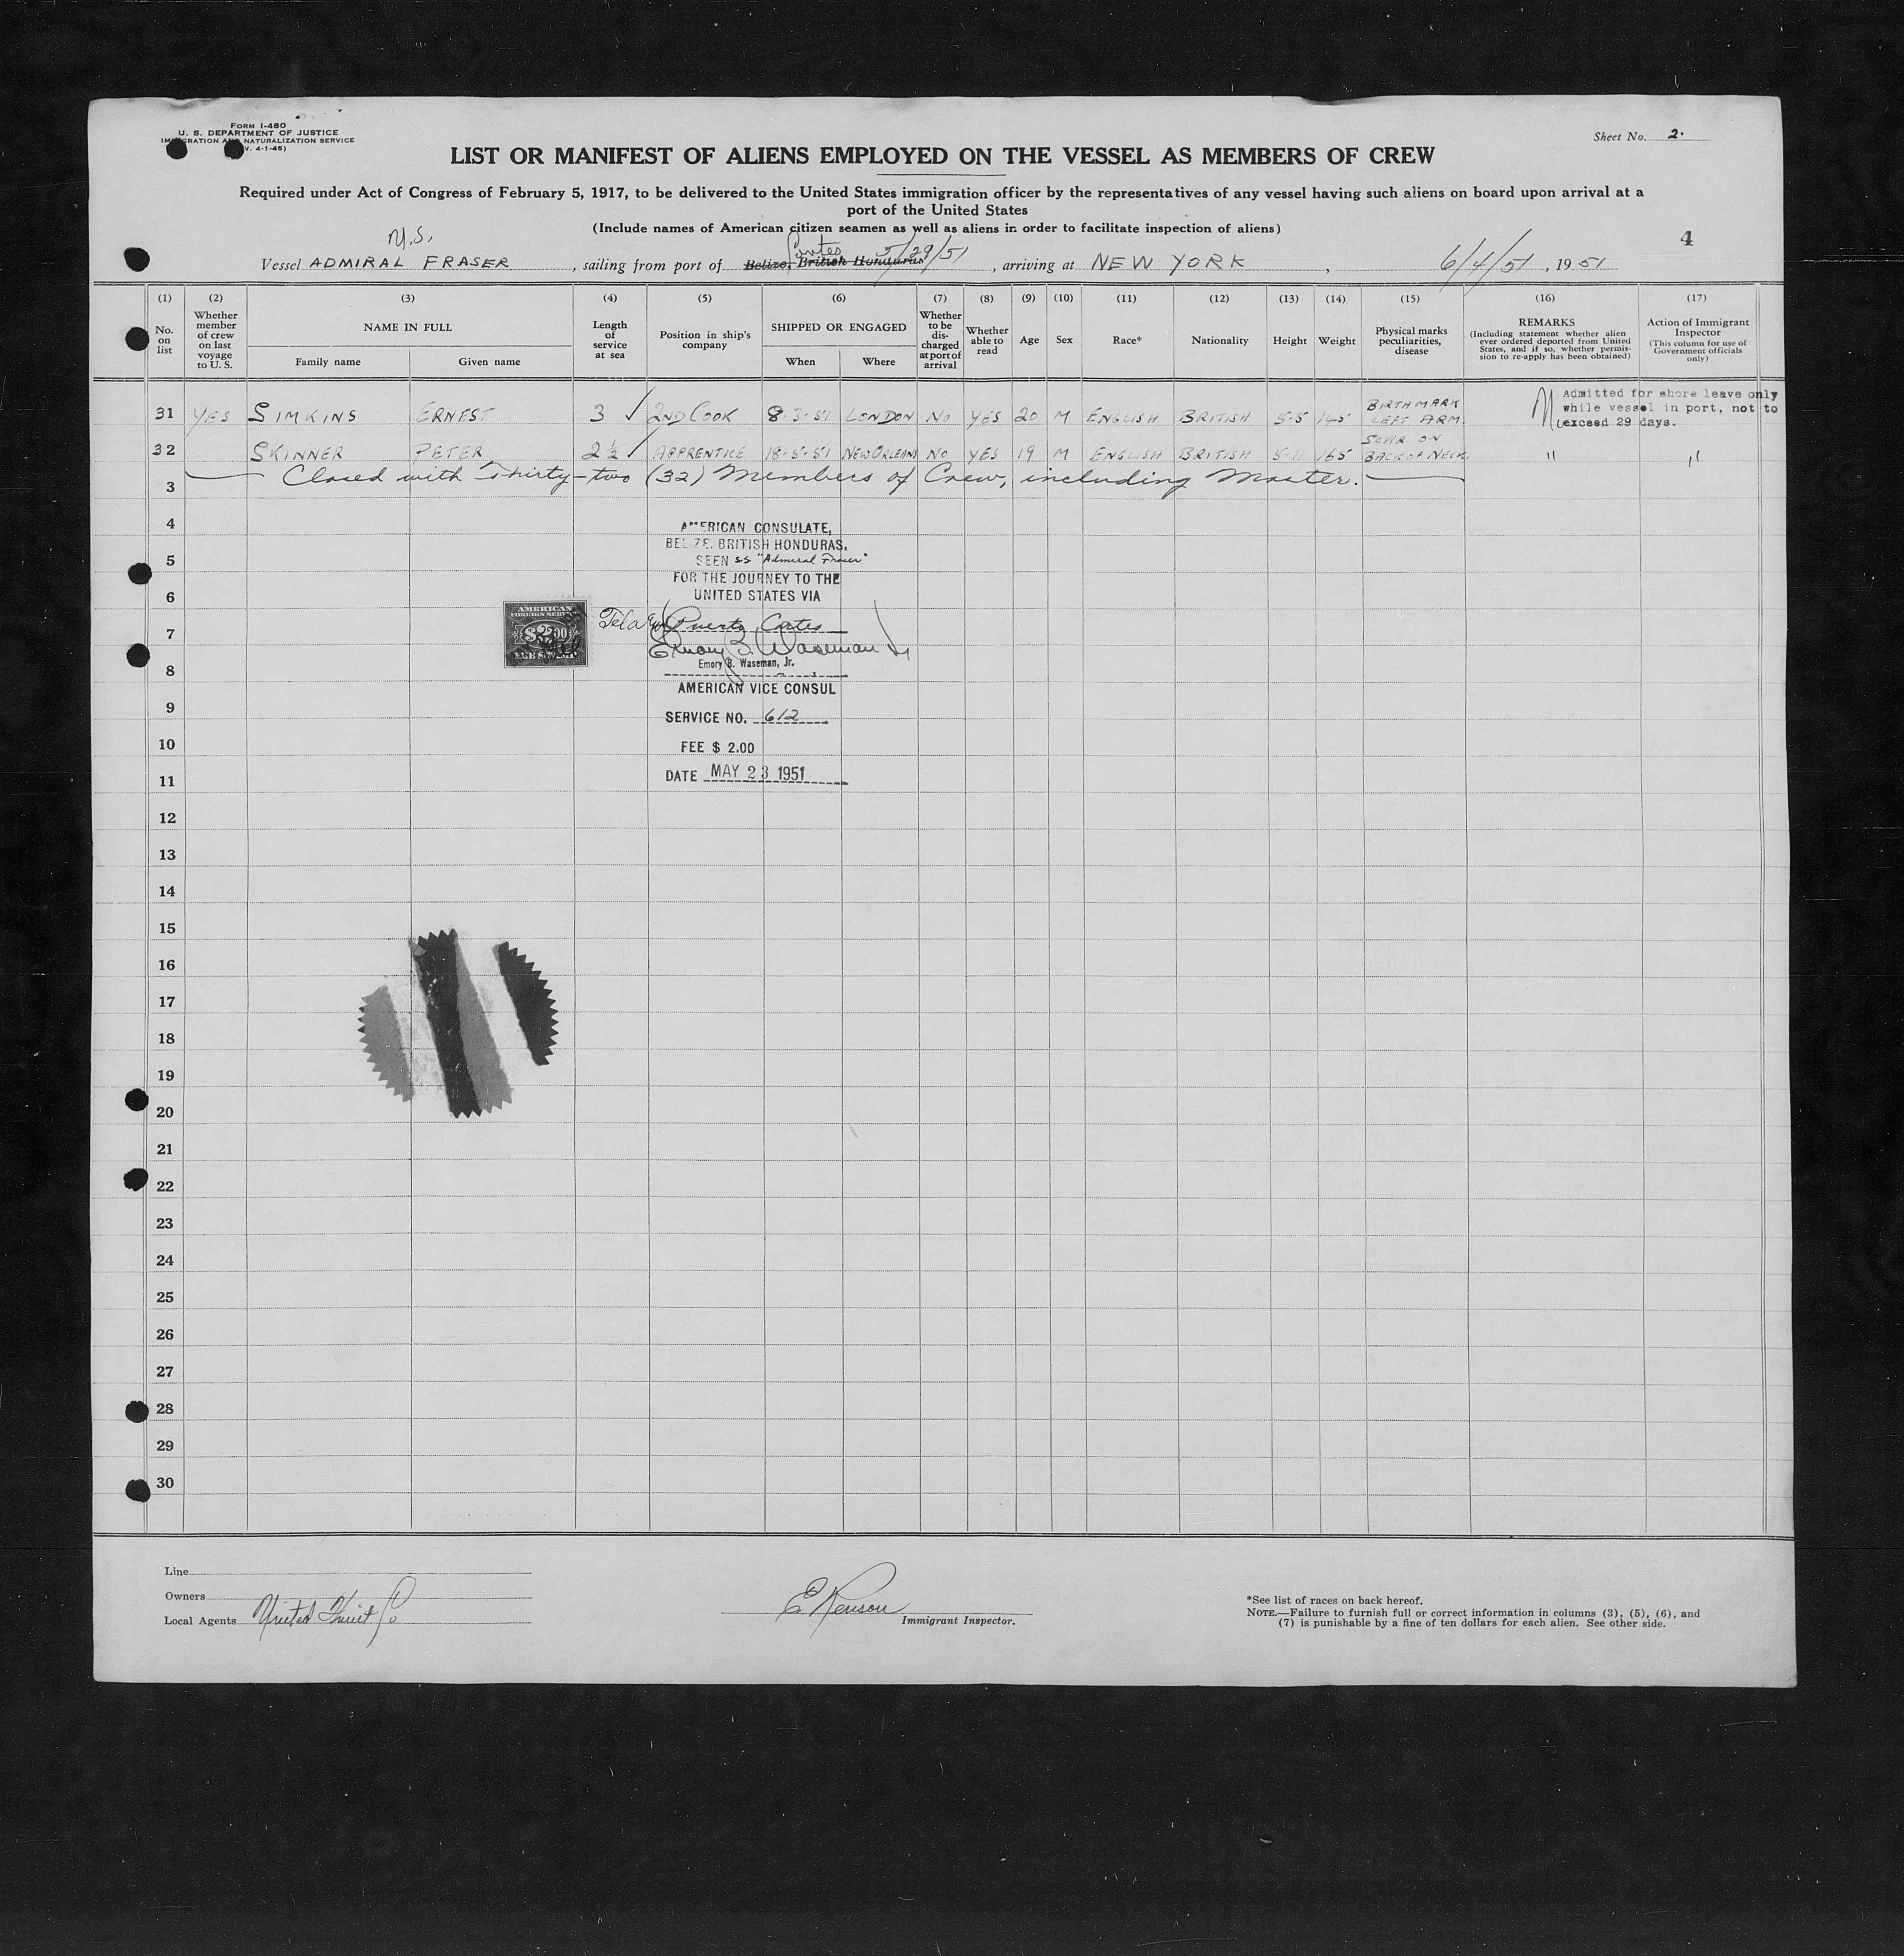 FORM I-480
U. S. DEPARTMENT OF JUSTICE
IMMIGRATION AND NATURALIZATION SERVICE
V. 4-1-45)
Sheet No. 2.
LIST OR MANIFEST OF ALIENS EMPLOYED ON THE VESSEL AS MEMBERS OF CREW
Required under Act of Congress of February 5, 1917, to be delivered to the United States immigration officer by the representatives of any vessel having such aliens on board upon arrival at a
port of the United States
(Include names of American citizen seamen as well as aliens in order to facilitate inspection of aliens)
4
M.S. Cortes 5/29/51
Vessel ADMIRAL FRASER, sailing from port of Belize, British Honduras, arriving at NEW YORK, 6/4/51, 1951
(1) (2) (3) (4) (5) (6) (7) (8) (9) (10) (11) (12) (13) (14) (15) (16) (17)
No. on list
Whether member of crew on last voyage to U. S.
NAME IN FULL
Family name Given name
Length of service at sea
Position in ship's company
SHIPPED OR ENGAGED
When Where
Whether to be discharged at port of arrival
Whether able to read
Age
Sex
Race*
Nationality
Height
Weight
Physical marks peculiarities, disease
REMARKS
(Including statement whether alien ever ordered deported from United States, and if so, whether permission to re-apply has been obtained)
Action of Immigrant Inspector
(This column for use of Government officials only)
31 YES SIMKINS ERNEST 3 ✓ 2ND COOK 8-3-51 LONDON NO YES 20 M ENGLISH BRITISH 5-5 145 BIRTHMARK LEFT ARM. Admitted for shore leave only while vessel in port, not to exceed 29 days.
32 SKINNER PETER 2½ ✓ APPRENTICE 18-5-51 NEW ORLEANS NO YES 19 M ENGLISH BRITISH 5-11 165 SCAR ON BACK OF NECK " "
3 Closed with Thirty-two (32) Members of Crew, including Master.
4
AMERICAN CONSULATE,
BELIZE, BRITISH HONDURAS.
5
SEEN SS "Admiral Fraser"
FOR THE JOURNEY TO THE
6
UNITED STATES VIA
Tela Puerto Cortes
7
AMERICAN
FOREIGN SERVICE
$2.00
Emory B. Waseman Jr
Emory B. Waseman, Jr.
8
AMERICAN VICE CONSUL
9
SERVICE NO. 612
10
FEE $ 2.00
11
DATE MAY 23 1951
12
13
14
15
16
17
18
19
20
21
22
23
24
25
26
27
28
29
30
Line
Owners
Local Agents United Fruit Co
E Kenson
Immigrant Inspector.
*See list of races on back hereof.
NOTE.—Failure to furnish full or correct information in columns (3), (5), (6), and
(7) is punishable by a fine of ten dollars for each alien. See other side.